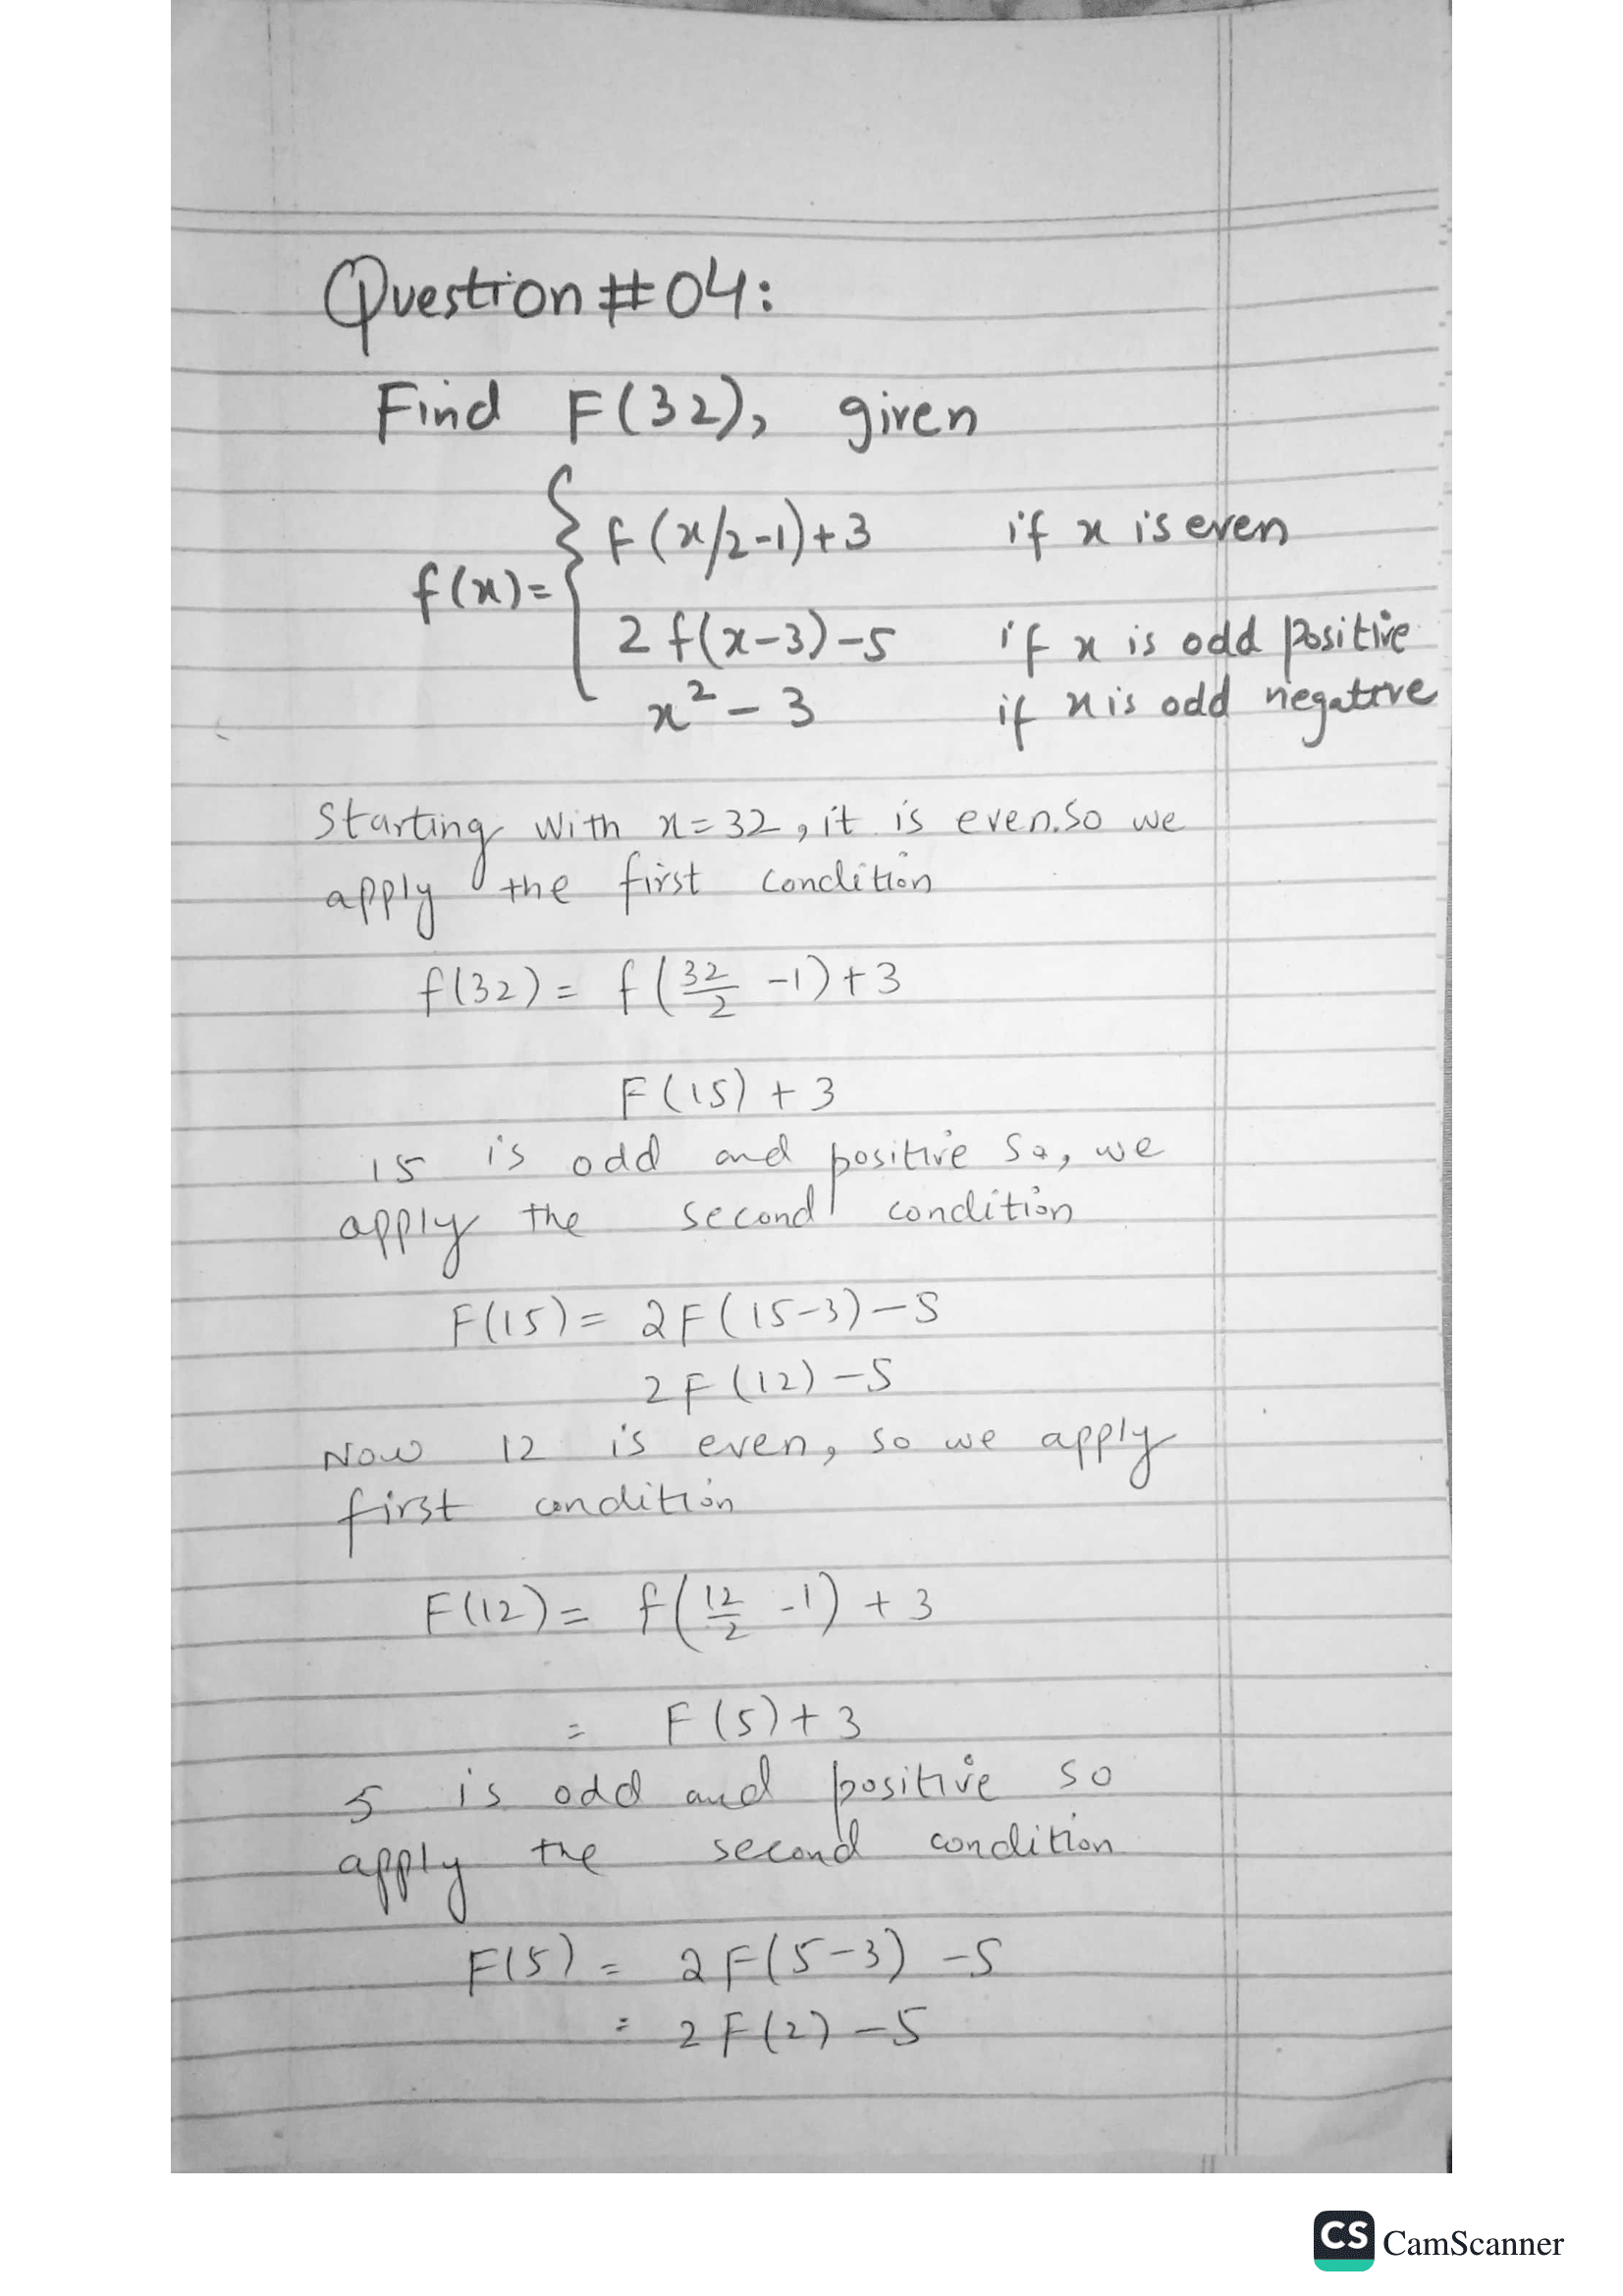 Question #04:
Find F(32), given
f(x)= { f(x/2-1)+3 if x is even
2 f(x-3)-5 if x is odd positive
x² - 3 if x is odd negative
Starting with x=32, it is even. So we
apply the first condition
f(32) = f(32/2 -1)+3
F(15) + 3
15 is odd and positive so, we
apply the second condition
F(15) = 2F(15-3)-5
2F(12)-5
Now 12 is even, so we apply
first condition
F(12) = f(12/2 -1) + 3
= F(5)+3
5 is odd and positive so
apply the second condition
F(5) = 2F(5-3) -5
= 2F(2) -5
CS CamScanner